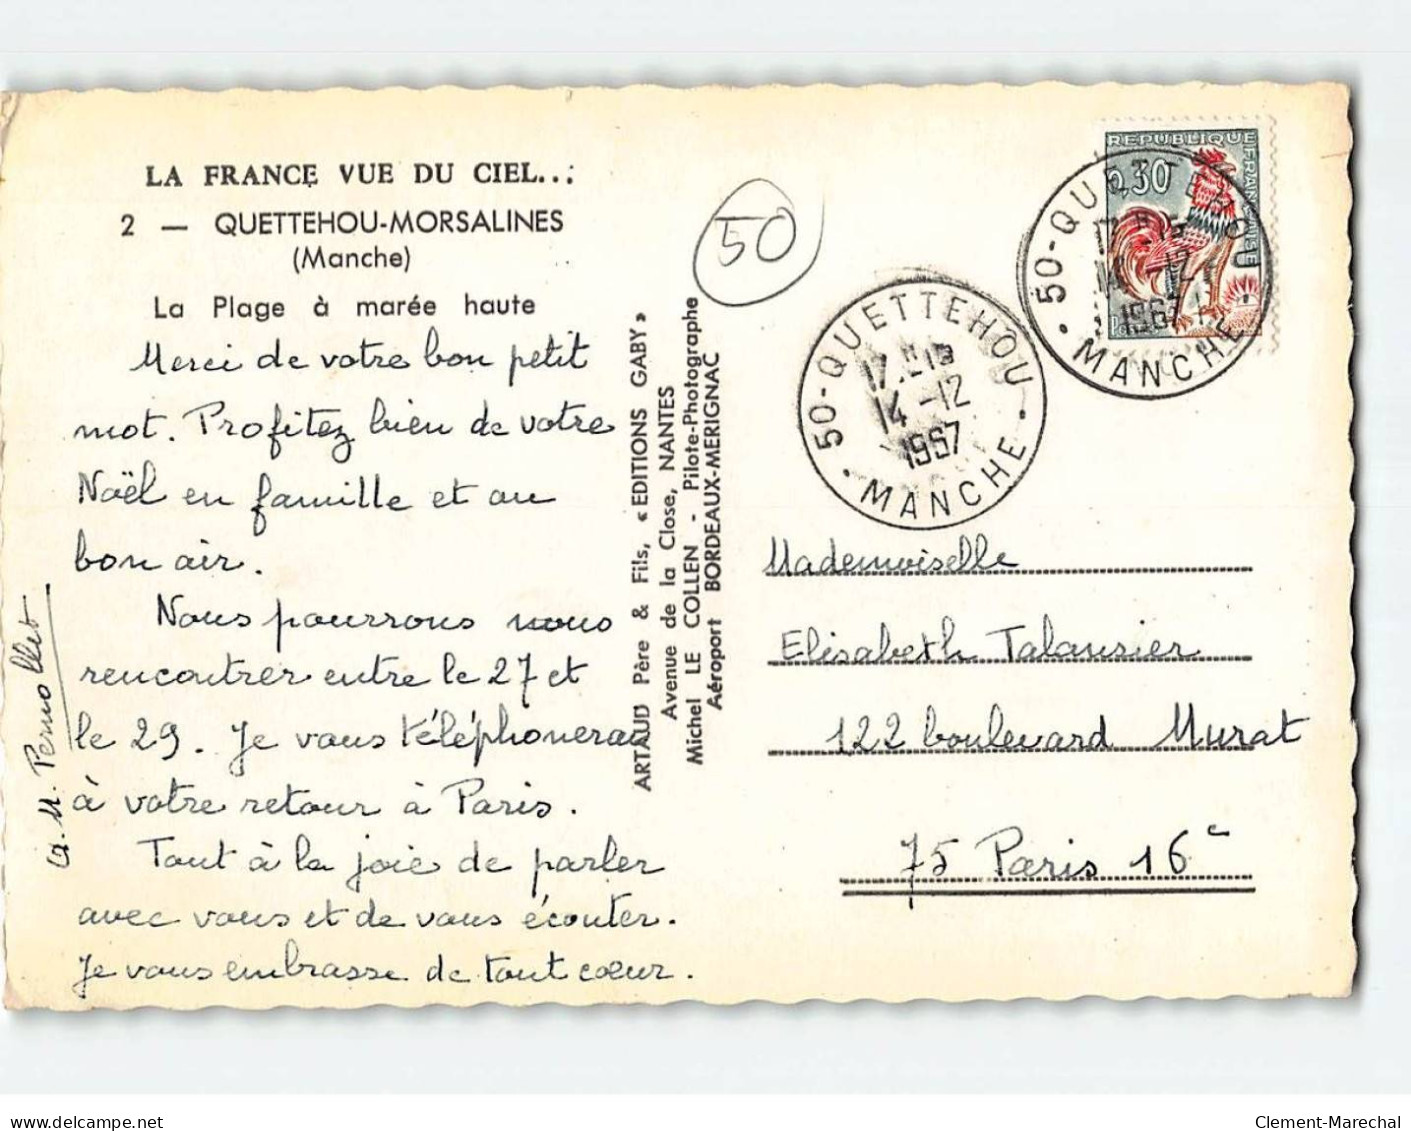 LA FRANCE VUE DU CIEL...
2 — QUETTEHOU-MORSALINES
(Manche)
La Plage à marée haute
Merci de votre bon petit
mot. Profitez bien de votre
Noël en famille et au
bon air.
Nous pourrons nous
rencontrer entre le 27 et
le 29. Je vous téléphonerai
à votre retour à Paris.
Tout à la joie de parler
avec vous et de vous écouter.
Je vous embrasse de tout coeur.
M. Pernollet
ARTAUD Père & Fils, « EDITIONS GABY »
Avenue de la Close, NANTES
Michel LE COLLEN - Pilote-Photographe
Aéroport BORDEAUX-MERIGNAC
50
REPUBLIQUE FRANCAISE
0,30
50-QUETTEHOU
14-12
1967
MANCHE
50-QUETTEHOU
14-12
1967
MANCHE
Mademoiselle
Elisabeth Talansier
122 boulevard Murat
75 Paris 16e
www.delcampe.net
Clement-Marechal